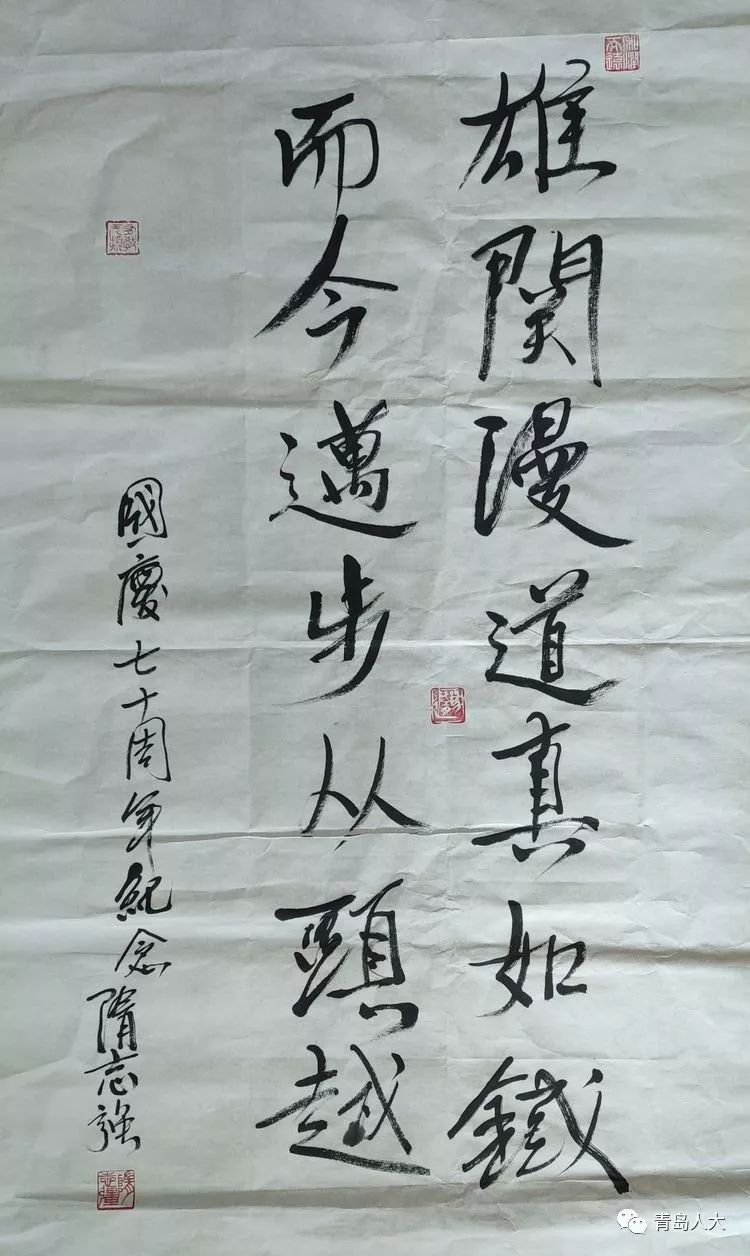 雄関漫道真如鐵
而今邁步从頭越
國慶七十周年紀念 隋志强
青岛人大